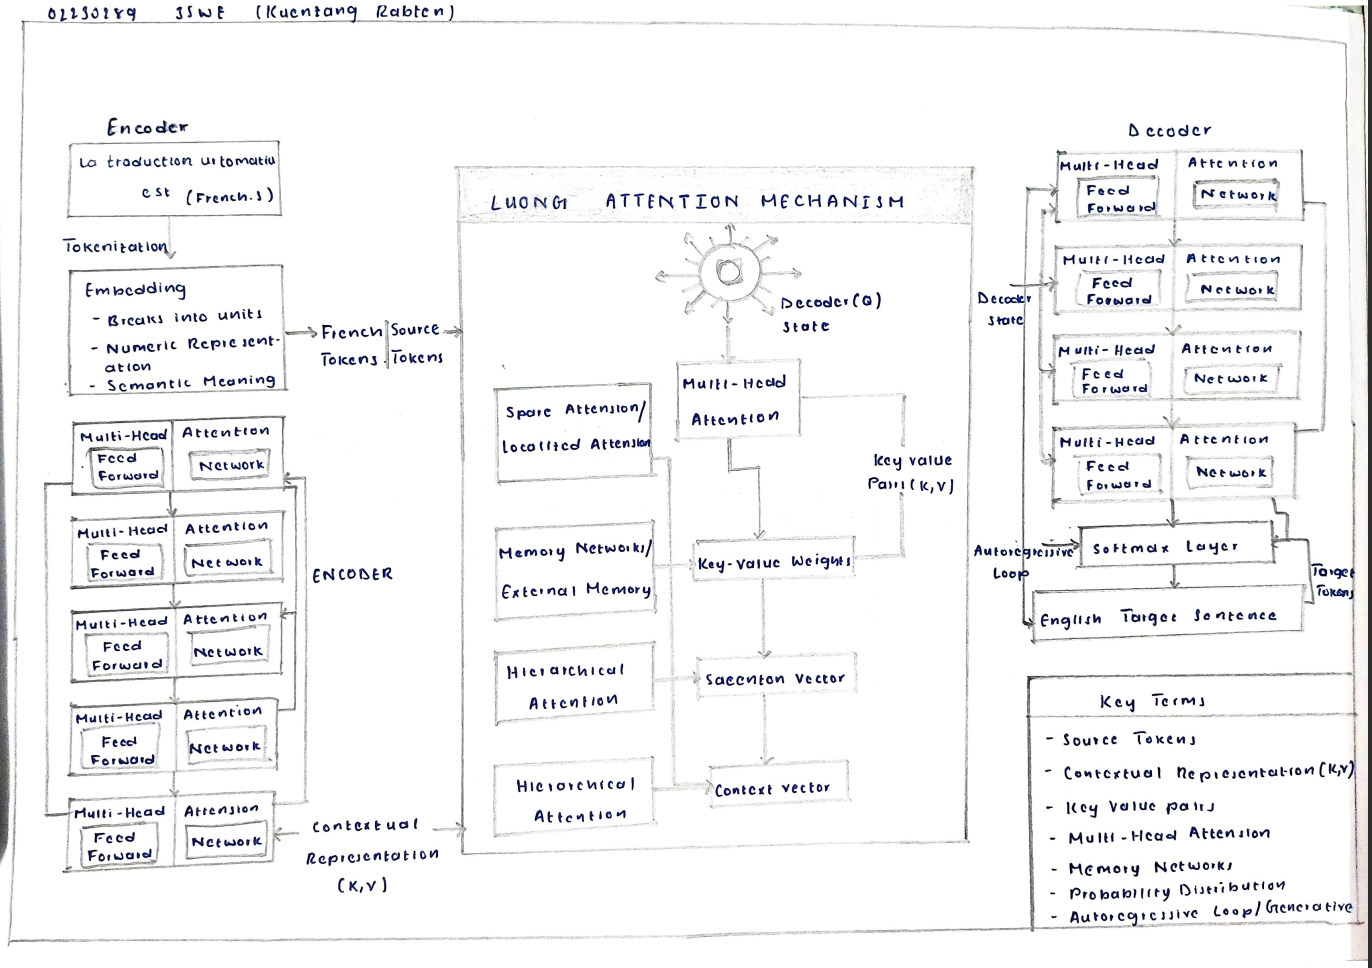 02230289 3SWE (Kuentang Rabten)
Encoder
La traduction utomatiu
est (French.s)
Tokenization
Embedding
- Breaks into units
- Numeric Represent-
ation
- Semantic Meaning
French Source
Tokens Tokens
Multi-Head Attention
Feed
Forward
Network
Multi-Head Attention
Feed
Forward
Network
Multi-Head Attention
Feed
Forward
Network
Multi-Head Attention
Feed
Forward
Network
Multi-Head Attension
Feed
Forward
Network
ENCODER
Contextual
Representation
(K,V)
LUONG ATTENTION MECHANISM
Decoder(Q)
State
Multi-Head
Attention
Key value
Pair(K,V)
Spare Attension/
Localized Attension
Memory Networks/
External Memory
Key-Value Weights
Hierarchical
Attention
Saeenton Vector
Hierarchical
Attention
Context vector
Decoder
Multi-Head Attention
Feed
Forward
Network
Multi-Head Attention
Feed
Forward
Network
Decoder
State
Multi-Head Attention
Feed
Forward
Network
Multi-Head Attention
Feed
Forward
Network
Autoregressive
Loop
Softmax Layer
Target
Tokens
English Target Sentence
Key Terms
- Source Tokens
- Contextual Representation(K,V)
- Key Value pairs
- Multi-Head Attension
- Memory Networks
- Probability Distribution
- Autoregressive Loop/Generative